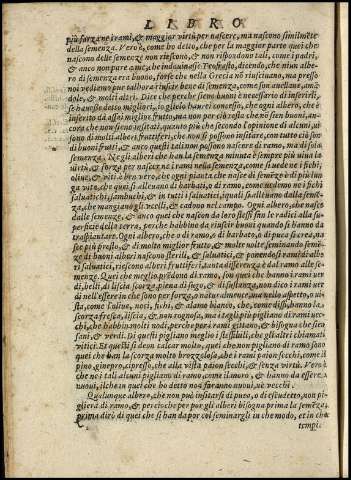 LIBRO
più forza ne i rami, & maggior virtù per nascere, ma nascono similmẽte
della semenza. Vero è, come ho detto, che per la maggior parte quei che
nascono delle semenze non riescono, & non rispondono tali, come i padri,
& anco non pure anco, che indouinasse Teofrasto, dicendo, che niun albe
ro di semenza era buono, forse che nella Grecia nõ riusciuano, ma presso
noi vediamo pur talhora riuscir bene di semenza, come son auellane, amã
dole, & molti altri. Dice che perche sieno buoni è necessario di inserirli,
s'hauesse detto migliori, io glielo haurei concesso, che ogni albero, che è
inserito da assai miglior frutto, ma non per ciò resta che nõ sien buoni, an-
cora che non siano insitati, quanto più che secondo l'opinione di alcuni, ui
sono di molti alberi fruttiferi, che non si possono insitare, con tutto ciò son
di buoni frutti, & anco questi tali non possono nascere di ramo, ma di sola
semenza. Negli alberi che han la semenza minuta è sempre più uiua la
virtù, & forza per nascere i rami nella semenza, come si uede ne i fichi,
oliue, & viti. è ben vero, che ogni pianta che nasce di semẽza è di più lun
ga vita, che quei si alleuano di barbati, o di ramo, come uedemo ne i fichi
saluatichi, sambuchi, & in tutti i saluatici, i quali si alleuano dalla semẽ-
za, che mangiano gli vcelli, & cadono nel campo. Ogni albero, che nasce
dalle semenze, & anco quei che nascon da loro stessi fan le radici alla su-
perficie della terra, perche habbino da riuscir buoni quando si hanno da
traspiantare. Ogni albero, che o di ramo, o di barbato, o di puca si crea, na
sce più presto, & di molto miglior frutto, & molte volte seminando semẽ-
ze di buoni alberi nascono sterili, & saluatici, & ponendosi rami d'albe-
ri saluatici, riescono alberi fruttiferi, tanta differenza è dal ramo alle se-
menze. Quei che meglio prẽdono di ramo, son quei che hanno i rami uer
di, belli, di liscia scorza, piena di sugo, & di sustanza, non dico i rami uer
di nell'essere in che son per forza, o naturalmente, ma nello aspetto, o ui-
sta, come l'oliuo, noci, fichi, & alamo bianco, &c. come dissi, hanno la
scorza fresca, liscia, & non rognosa, ma i tagli più pigliano di rami uec-
chi, che habbin molti nodi, perche per i rami gittano, & bisogna che sien
sani, & verdi. Di questi pigliano meglio i festilulli, che gli altri chiamati
vitici. Et questi si deon calcar molto, quei che non pigliano di ramo son
quei che han la scorza molto brozzolosa, che i rami paion secchi, come il
pino, ginepro, cipresso, che alla vista paion secchi, & senza virtù. Vero è
che ne i tali alcuni pigliano di ramo, come il moro, & hanno da essere
nuoui, il che in quel che ho detto non faranno nuoui, ne vecchi.
Qualunque albero, che non può insitarsi di puco, o di escudetto, non pi-
glierà di ramo, & percioche per por gli alberi bisogna prima la semẽza,
prima dirò di quei che si han da por col seminargli in che modo, et in che
tempi.